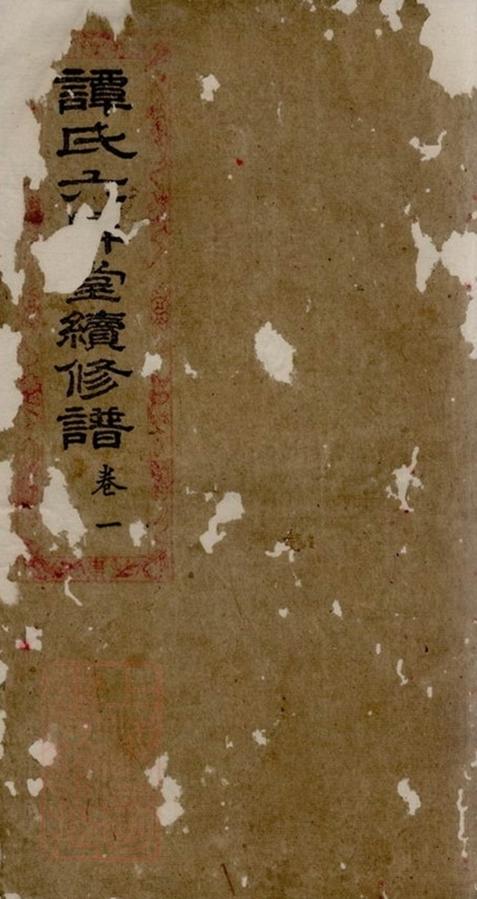 譚氏六堂續修譜
卷一